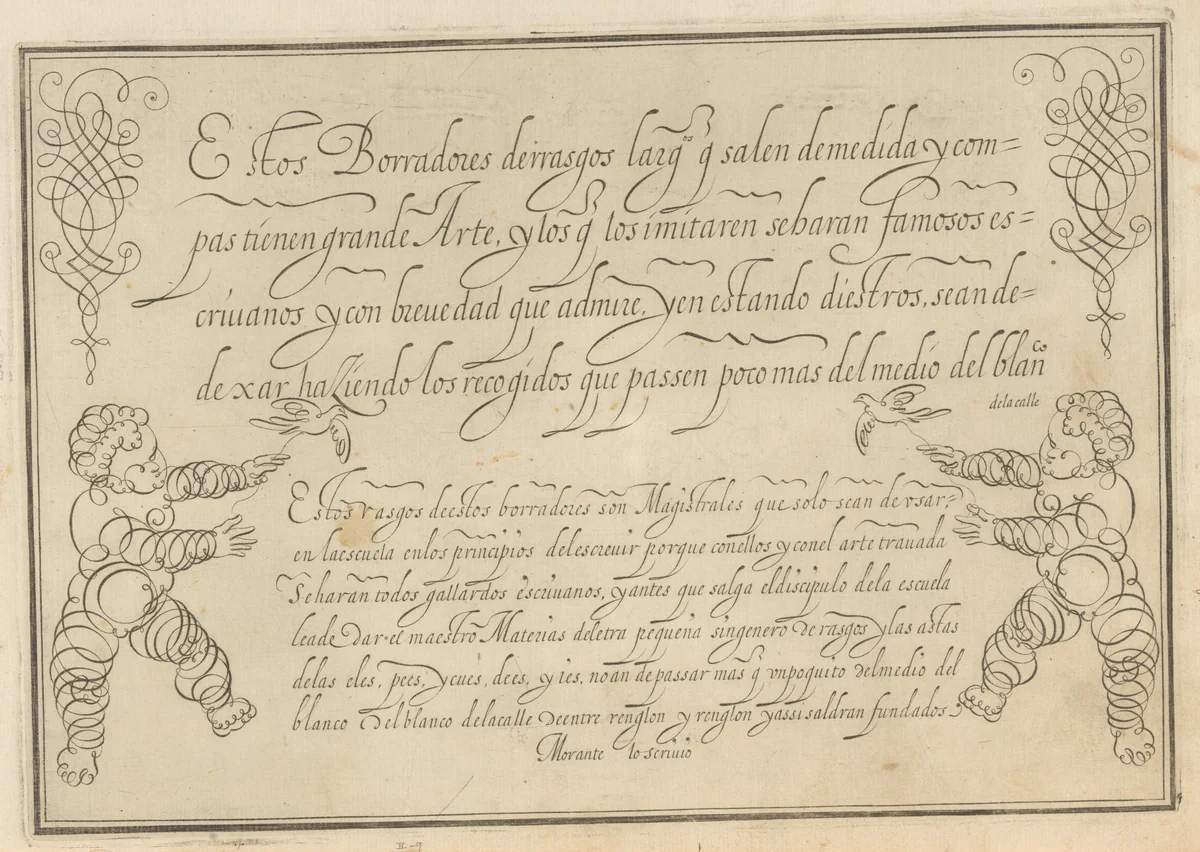 Estos Borradores derrasgos largos q̃ salen demedida y com=
pas tienen grande Arte, y los q̃ los imitaren seharan famosos es=
criuanos y con breuedad que admire, y en estando diestros, sean de=
dexar haziendo los recogidos que passen poco mas del medio del blanco
dela calle
Estos rasgos destos borradores son Magistrales que solo sean de vsar,
en la escuela en los principios del escreuir porque conellos y conel arte trauada
Seharan todos gallardos escriuanos, y antes que salga el discipulo dela escuela
leade Dar el maestro Materias deletra pequeña singenero de rasgos y las astas
delas eles, pees, y cues, dees, y ies, no an de passar mas q̃ vn poquito del medio del
blanco Del blanco dela calle Deentre renglon y renglon y assi saldran fundados
Morante lo scriuio
II-9